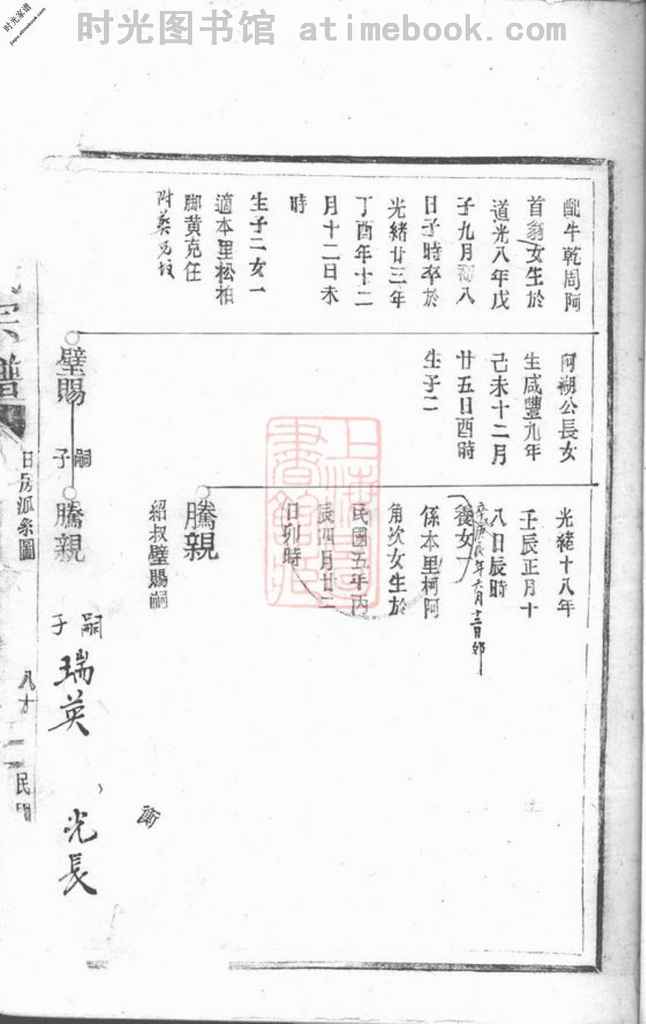 时光图书馆 atimebook.com
时光家谱
配牛乾周阿
首翁女生於
道光八年戊
子九月初八
日子時卒於
光緒廿三年
丁酉年十二
月十二日未
時
生子二女一
適本里松柏
腳黄克任
阿朔公長女
生咸豐九年
己未十二月
廿五日酉時
生子二
璧賜
嗣
子
騰親
光緒十八年
壬辰正月十
八日辰時
養女一
係本里柯阿
角次女生於
民國五年丙
辰四月廿二
日卯時
騰親
紹叔璧賜嗣
嗣
子
瑞英
光長
上海圖書館藏
宗譜